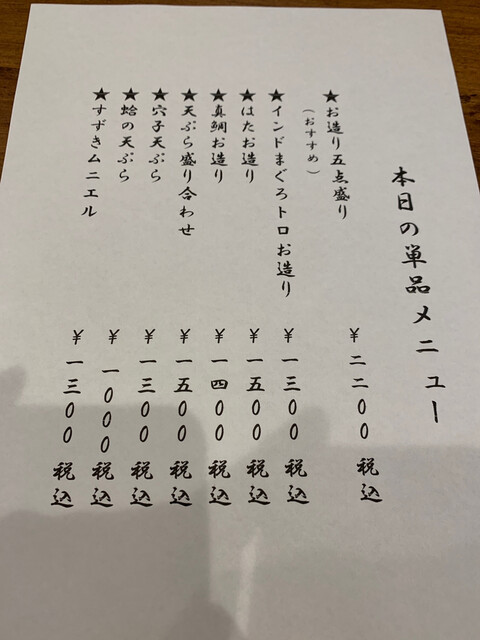 本日の単品メニュー
★お造り五点盛り ¥二二００税込
（おすすめ）
★インドまぐろトロお造り ¥一三００税込
★はたお造り ¥一五００税込
★真鯛お造り ¥一四００税込
★天ぷら盛り合わせ ¥一五００税込
★穴子天ぷら ¥一三００税込
★蛤の天ぷら ¥一０００税込
★すずきムニエル ¥一三００税込